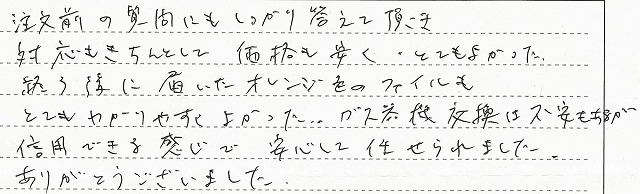 注文前の質問にもしっかり答えて頂き
対応もきちんとして 価格も安く、とてもよかった。
終了後に届いたオレンジ色のファイルも
とてもわかりやすくよかった。ガス器機交換は不安もあるが
信用できる感じで安心して任せられました。
ありがとうございました。